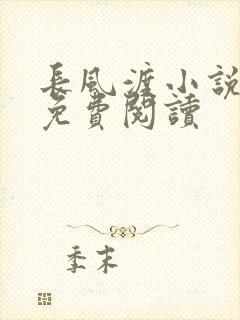 長風渡小說
免費閱讀
季末